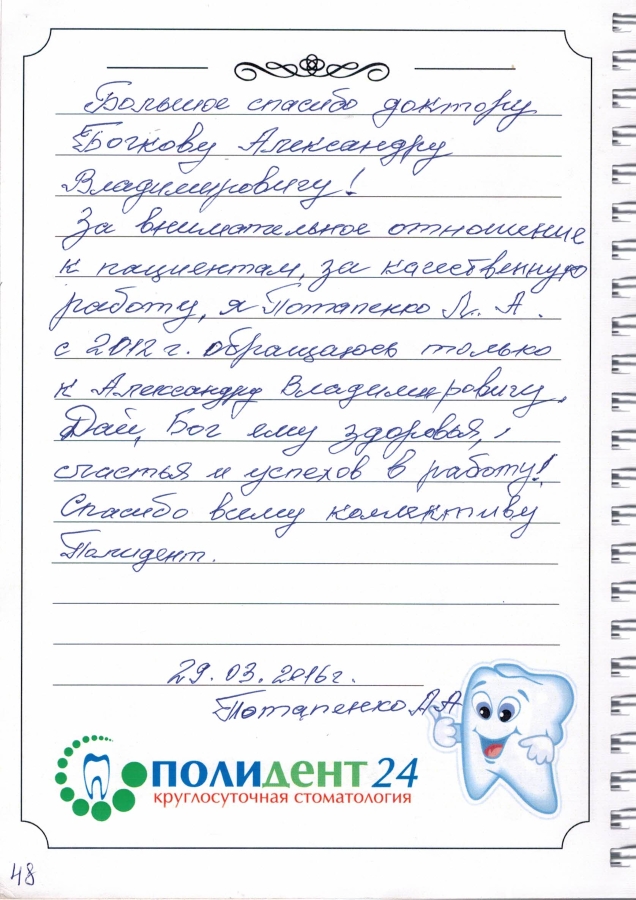 Большое спасибо доктору
Бочкову Александру
Владимировичу!
За внимательное отношение
к пациентам, за качественную
работу, я Потапенко Л. А.
с 2012 г. обращаюсь только
к Александру Владимировичу.
Дай, Бог ему здоровья,
счастья и успехов в работу!
Спасибо всему коллективу
Полидент.
29.03.2016г.
Потапенко Л А
ПОЛИДЕНТ 24
круглосуточная стоматология
48